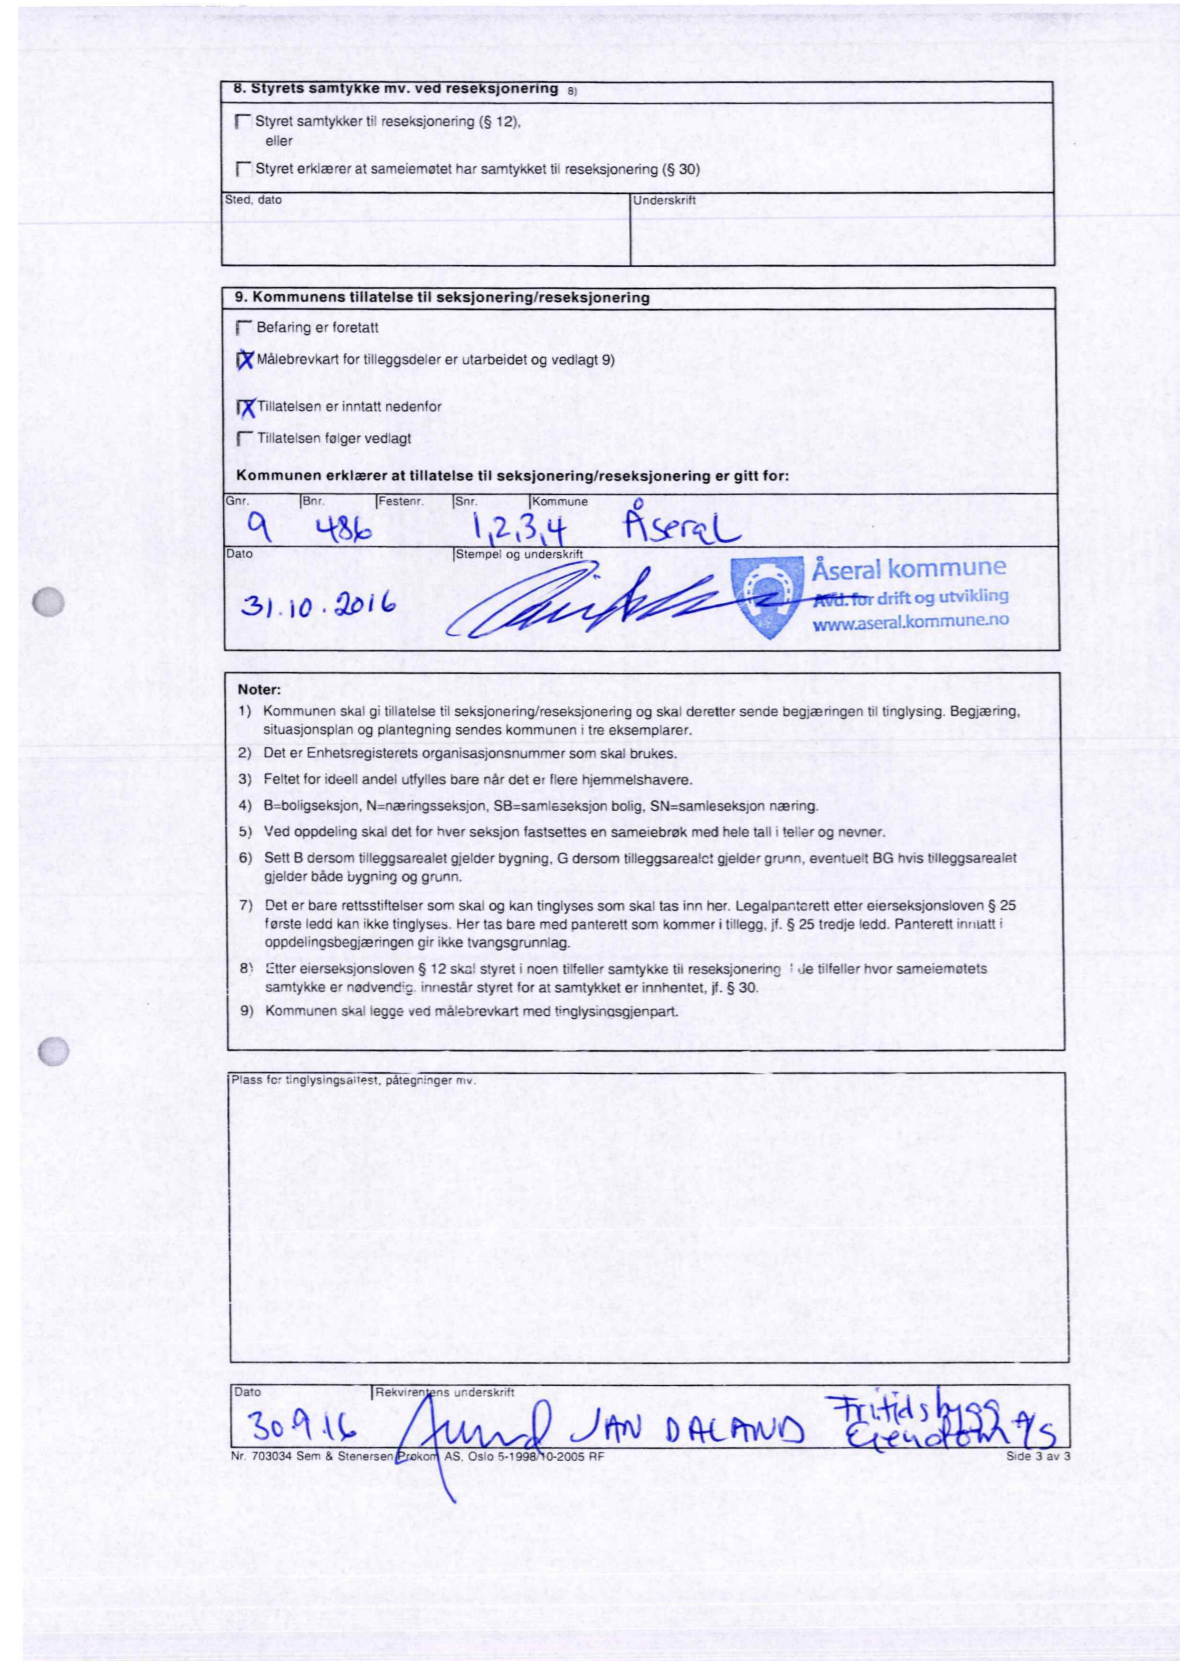 8. Styrets samtykke mv. ved reseksjonering 8)
Styret samtykker til reseksjonering (§ 12),
eller
Styret erklærer at sameiemøtet har samtykket til reseksjonering (§ 30)
Sted, dato Underskrift
9. Kommunens tillatelse til seksjonering/reseksjonering
Befaring er foretatt
X Målebrevkart for tilleggsdeler er utarbeidet og vedlagt 9)
X Tillatelsen er inntatt nedenfor
Tillatelsen følger vedlagt
Kommunen erklærer at tillatelse til seksjonering/reseksjonering er gitt for:
Gnr. Bnr. Festenr. Snr. Kommune
9 486 1,2,3,4 Åseral
Dato Stempel og underskrift
31.10.2016
Åseral kommune
Avd. for drift og utvikling
www.aseral.kommune.no
Noter:
1) Kommunen skal gi tillatelse til seksjonering/reseksjonering og skal deretter sende begjæringen til tinglysing. Begjæring,
situasjonsplan og plantegning sendes kommunen i tre eksemplarer.
2) Det er Enhetsregisterets organisasjonsnummer som skal brukes.
3) Feltet for ideell andel utfylles bare når det er flere hjemmelshavere.
4) B=boligseksjon, N=næringsseksjon, SB=samleseksjon bolig, SN=samleseksjon næring.
5) Ved oppdeling skal det for hver seksjon fastsettes en sameiebrøk med hele tall i teller og nevner.
6) Sett B dersom tilleggsarealet gjelder bygning, G dersom tilleggsarealet gjelder grunn, eventuelt BG hvis tilleggsarealet
gjelder både bygning og grunn.
7) Det er bare rettsstiftelser som skal og kan tinglyses som skal tas inn her. Legalpanterett etter eierseksjonsloven § 25
første ledd kan ikke tinglyses. Her tas bare med panterett som kommer i tillegg, jf. § 25 tredje ledd. Panterett inntatt i
oppdelingsbegjæringen gir ikke tvangsgrunnlag.
8) Etter eierseksjonsloven § 12 skal styret i noen tilfeller samtykke til reseksjonering I de tilfeller hvor sameiemøtets
samtykke er nødvendig, innestår styret for at samtykket er innhentet, jf. § 30.
9) Kommunen skal legge ved målebrevkart med tinglysingsgjenpart.
Plass for tinglysingsattest, påtegninger mv.
Dato Rekvirentens underskrift
30.9.16 JAN DALAND Fritidsbygg
Eiendom A/S
Nr. 703034 Sem & Stenersen Prokom AS, Oslo 5-1998/10-2005 RF Side 3 av 3